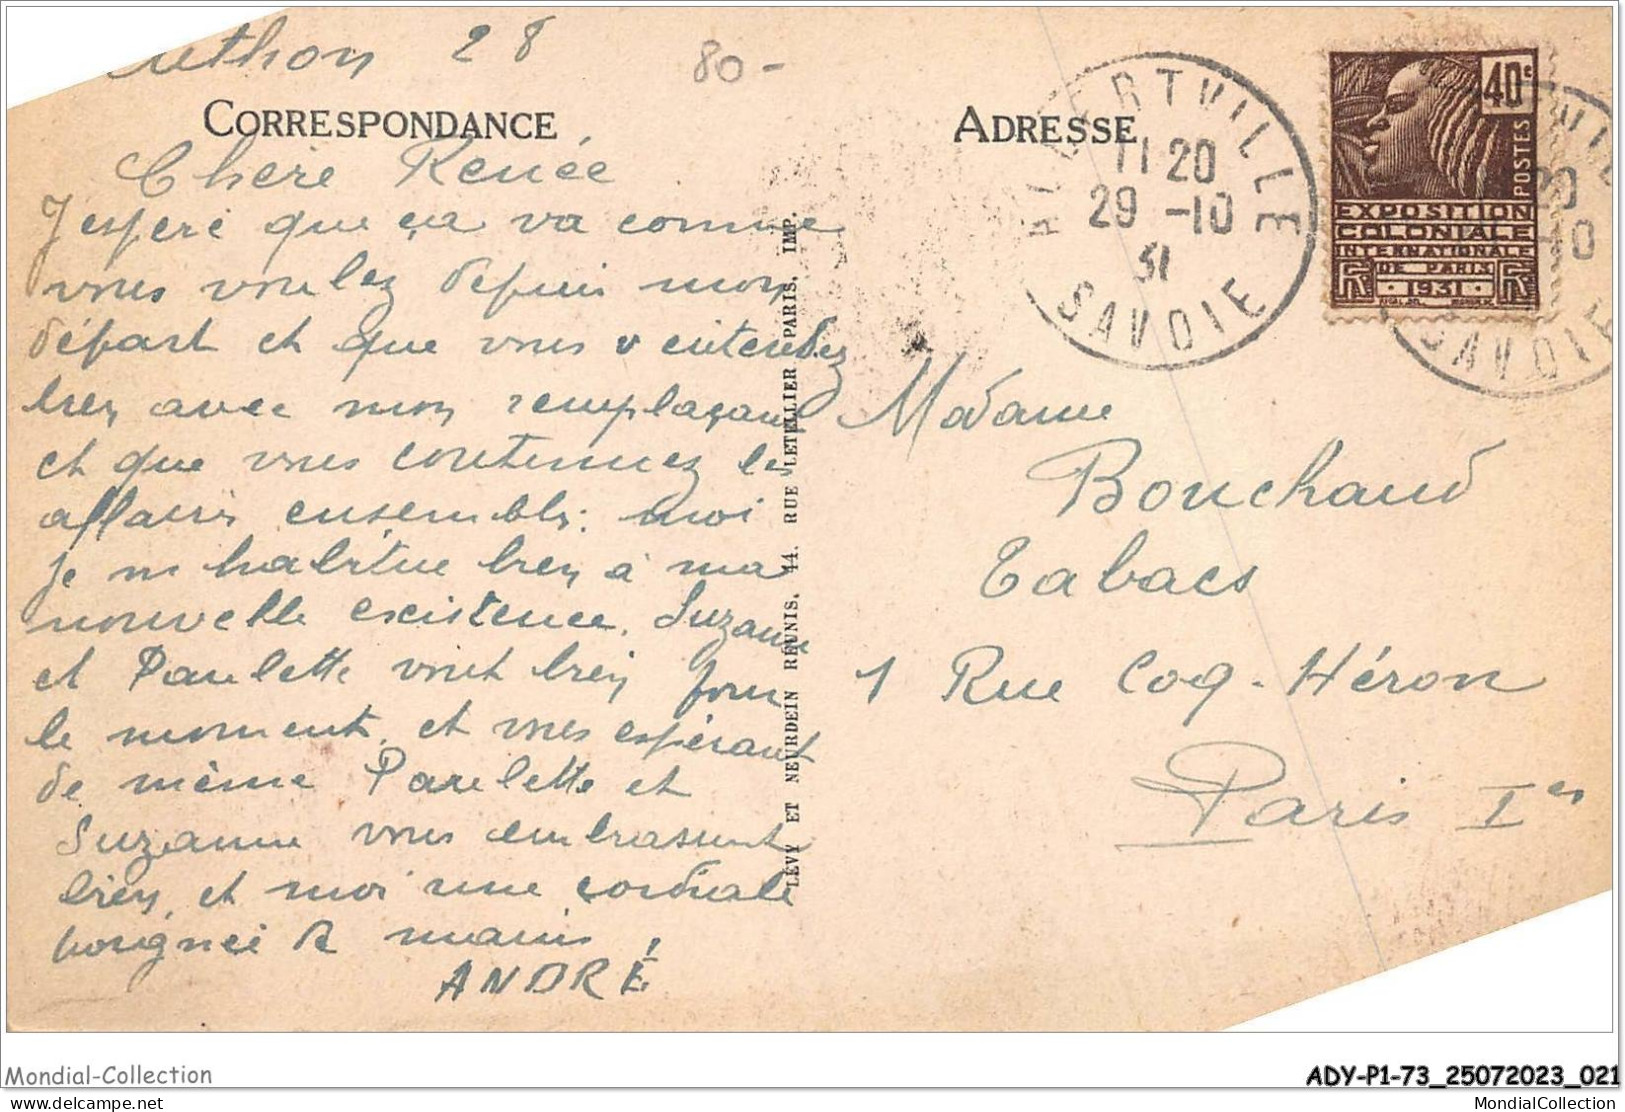 28
80-
CORRESPONDANCE
Chère Renée
J'espère que ça va comme
vous voulez depuis mon
départ et que vous v entendez
bien avec mon remplaçant
et que vous contennuez les
affaires ensembles. moi
je m habitue bien à ma
nouvelle existence. Suzanne
et Paulette vont bien pour
le moment, et vous espérant
de même Paulette et
Suzanne vous embrassent
bien, et moi une cordiale
poignée de mains !
ANDRÉ
LÉVY ET NEURDEIN RÉUNIS, 44, RUE LETELLIER, PARIS, IMP.
ADRESSE
ALBERTVILLE
11 20
29 -10
31
SAVOIE
40c
POSTES
EXPOSITION
COLONIALE
INTERNATIONALE
DE PARIS
RF · 1931 · RF
VILLE
20
-10
SAVOIE
Madame
Bouchaud
Tabacs
1 Rue Coq-Héron
Paris Ier
Mondial-Collection
delcampe.net
ADY-P1-73_25072023_021
MondialCollection